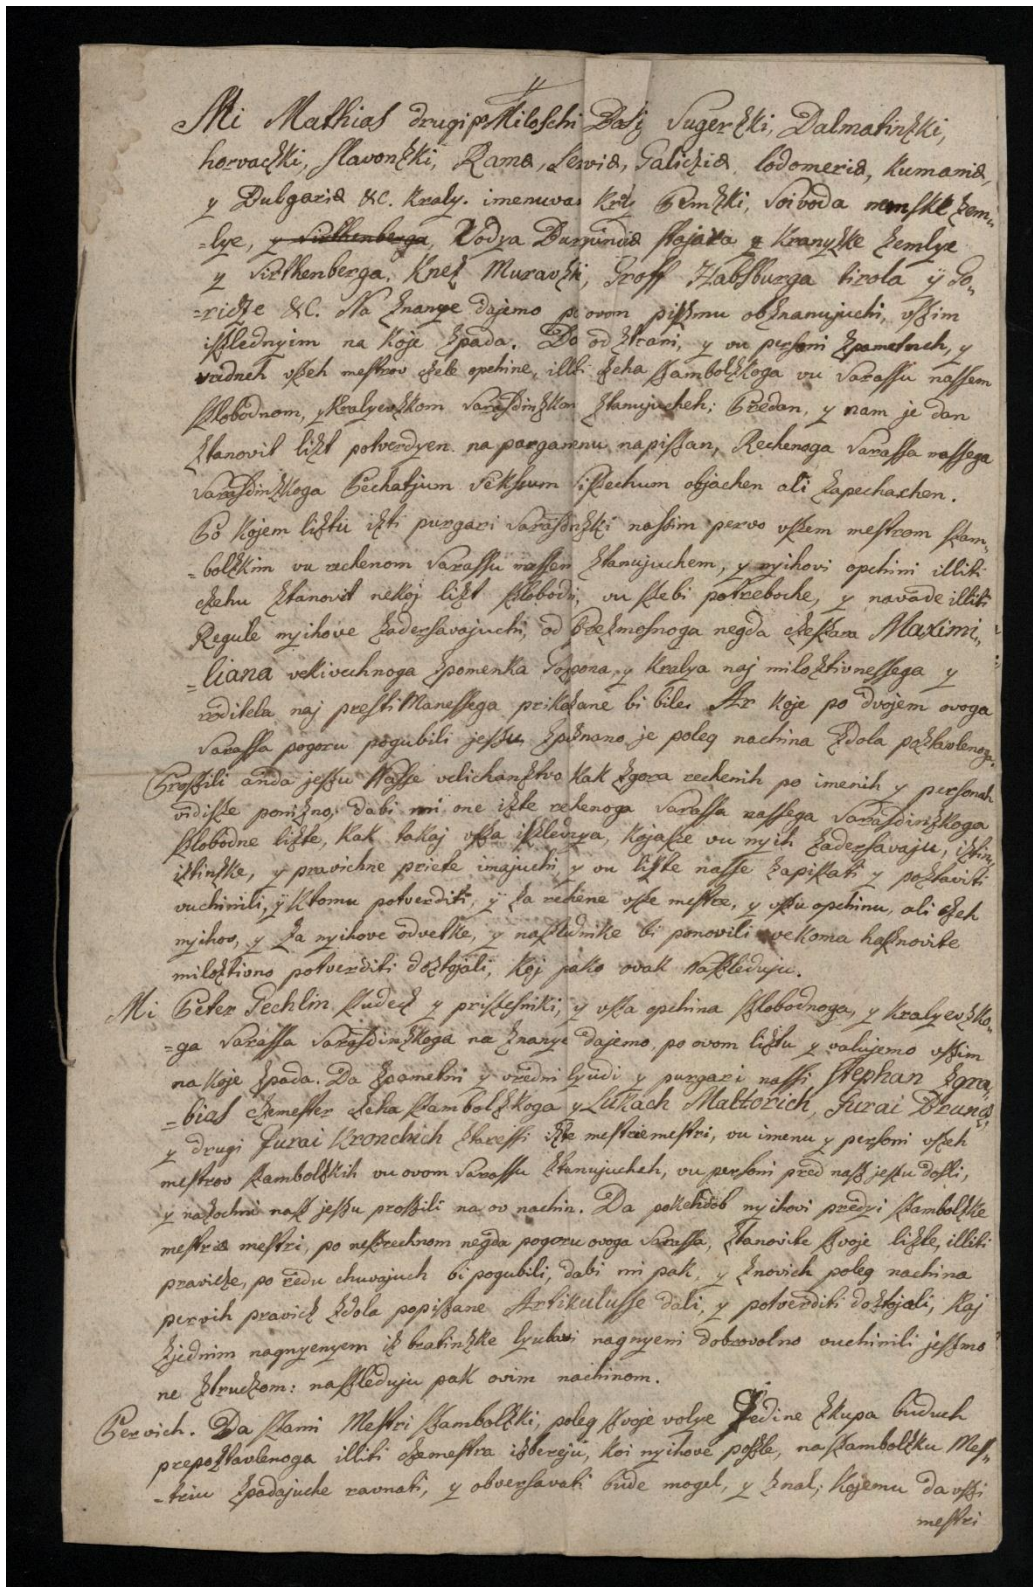 Mi Mathias drugi po Miloschi Dosij Vugerszki, Dalmatinszki,
horvaczki, slavonszki, Rama, Servia, Galiczia lodomeria, Kumania,
y Bulgaria &c. Kraly. imenuvan Kraly Pemszki, Voivoda nemske zem-
=lye, y Virthenberga, Vodya Burgundia stajara y Kranyzke zemlye
y Virthenberga. Knez Muravzki, Groff Habsburga tirola ÿ Go-
=ricze &c. Na znanye dajemo po ovom piszmu obznanujuchi, vszim
iszlednyim na koje zpada. Da od ztrani, y vu persone zpametneh, y
vredneh vszeh mestrov czele opchine, illi czeha szambolzkoga vu Varassu nassem
szlobodnom, y kralyevzkom Varasdinzkom ztanujucheh; Predan, y nam je dan
ztanovit lizt potverdyen na pargamenu napiszan, Rechenoga Varassa nassega
Varasdinzkoga Pechatjum Vekssum Viszechum objachen ali zapechachen.
Po kojem liztu izti purgari Varasdinzki nassim pervo vszem mestrom szam-
=bolzkim vu rechenom Varassu nassem ztanujuchem, y nyihovi opchini illiti
czehu ztanovit nekoj lizt szlobodni, vu szebi potreboche, y navade illiti
Regule nyihove zadersavajuchi, od Prezmosnoga negda czeszara Maximi-
=liana vekivechnoga zpomenka Gozpona, y Kralya naj miloztivnessega y
roditela naj prestimanessega prikazane bi bile. Ar koje po dvojem ovoga
Varassa pogoru pogubili jeszu zpoznano je poleg nachina zdola poztavlenoga.
Proszili anda jeszu Nasse velichanztvo kak zgora rechenih po imenih y personah
vidisze ponizno, dabi mi one izte rechenoga Varassa nassega Varasdinzkoga
szlobodne lizte, kak takaj vsza iszlednya, kojasze vu nyih zadersavaju, iztin-
iztinske, y pravichne priete imajuchi, y vu lizte nasse zapiszati y poztaviti
vuchinili, ÿ ktomu potverditi, ÿ za rechene vsze mestre, y vszu opchinu, ali czeh
nyihov, y za nyihove odvetke, y naszlednike bi ponovili vekoma hasznovite
miloztivno potverditi doztojali, koj jako ovak Naszleduju.
Mi Peter Pechlin szudecz y priszesniki, y vsza opchina szlobodnoga, y Kralyevzko-
=ga Varassa Varasdinzkoga na znanye dajemo po ovom liztu y valujemo vszim
na koje zpada. Da zpametni y vredni lyudi y purgari nassi Stephan Zgra-
=bias czemester czeha szambolzkoga y Lukach Maltorich, Jurai Drunes,
y drugi Jurai Kronchich ztaressi izte mestrie mestri, vu imenu y persone vszeh
mestrov szambolzkih vu ovom Varassu ztanujucheh, vu persone pred nasz jeszu dosli,
y nazochni nasz jeszu proszili na ov nachin. Da pokehdob nyihovi predyi szambolzke
mestrie mestri, po neszrechnom negda pogoru ovoga Varassa, ztanovite szvoje lizte, illiti
pravicze, po redu chuvajuch bi pogubili, dabi mi pak, y znovich poleg nachina
pervih pravicz zdola popiszane Artikulusse dali, y potverditi doztojali, kaj
zjednim nagnyenyem iz bratinzke lyubavi nagnyeni dobrovolno vuchinili jeszmo
ne ztruczom: naszleduju pak ovim nachinom.
Pervich. Da szami Mestri szambolzki, poleg szvoje volye Jedine zkupa buduch
prepoztavlenoga illiti czemestra izbereju, koi nyihove poszle, na szambolzku Mes-
=triu zpadajuche ravnati, y obversavati bude mogel, y znal; kojemu da vszi
mestri